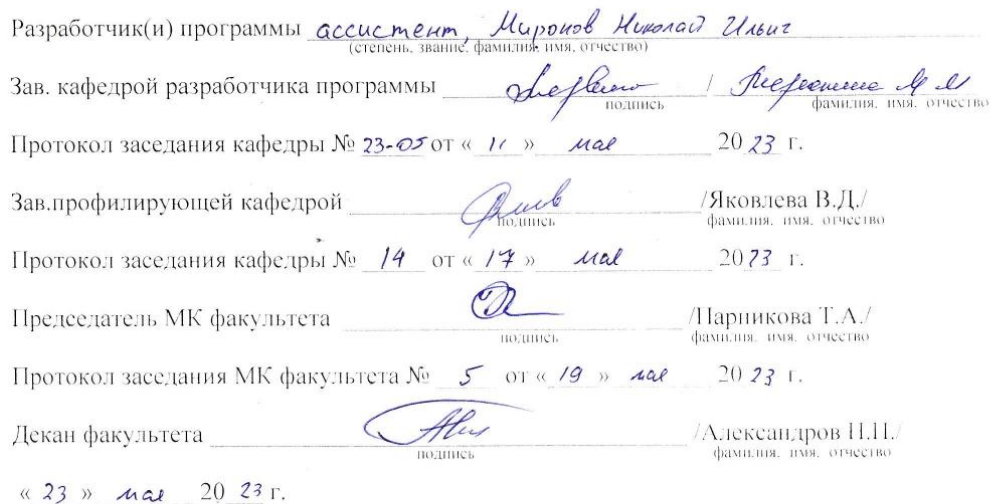 Разработчик(и) программы ассистент, Миронов Николай Ильич
(степень, звание, фамилия, имя, отчество)
Зав. кафедрой разработчика программы / М М
подпись фамилия, имя, отчество
Протокол заседания кафедры № 23-05 от « 11 » мая 20 23 г.
Зав.профилирующей кафедрой /Яковлева В.Д./
подпись фамилия, имя, отчество
Протокол заседания кафедры № 14 от « 17 » мая 20 23 г.
Председатель МК факультета /Парникова Т.А./
подпись фамилия, имя, отчество
Протокол заседания МК факультета № 5 от « 19 » мая 20 23 г.
Декан факультета /Александров Н.П./
подпись фамилия, имя, отчество
« 23 » мая 20 23 г.